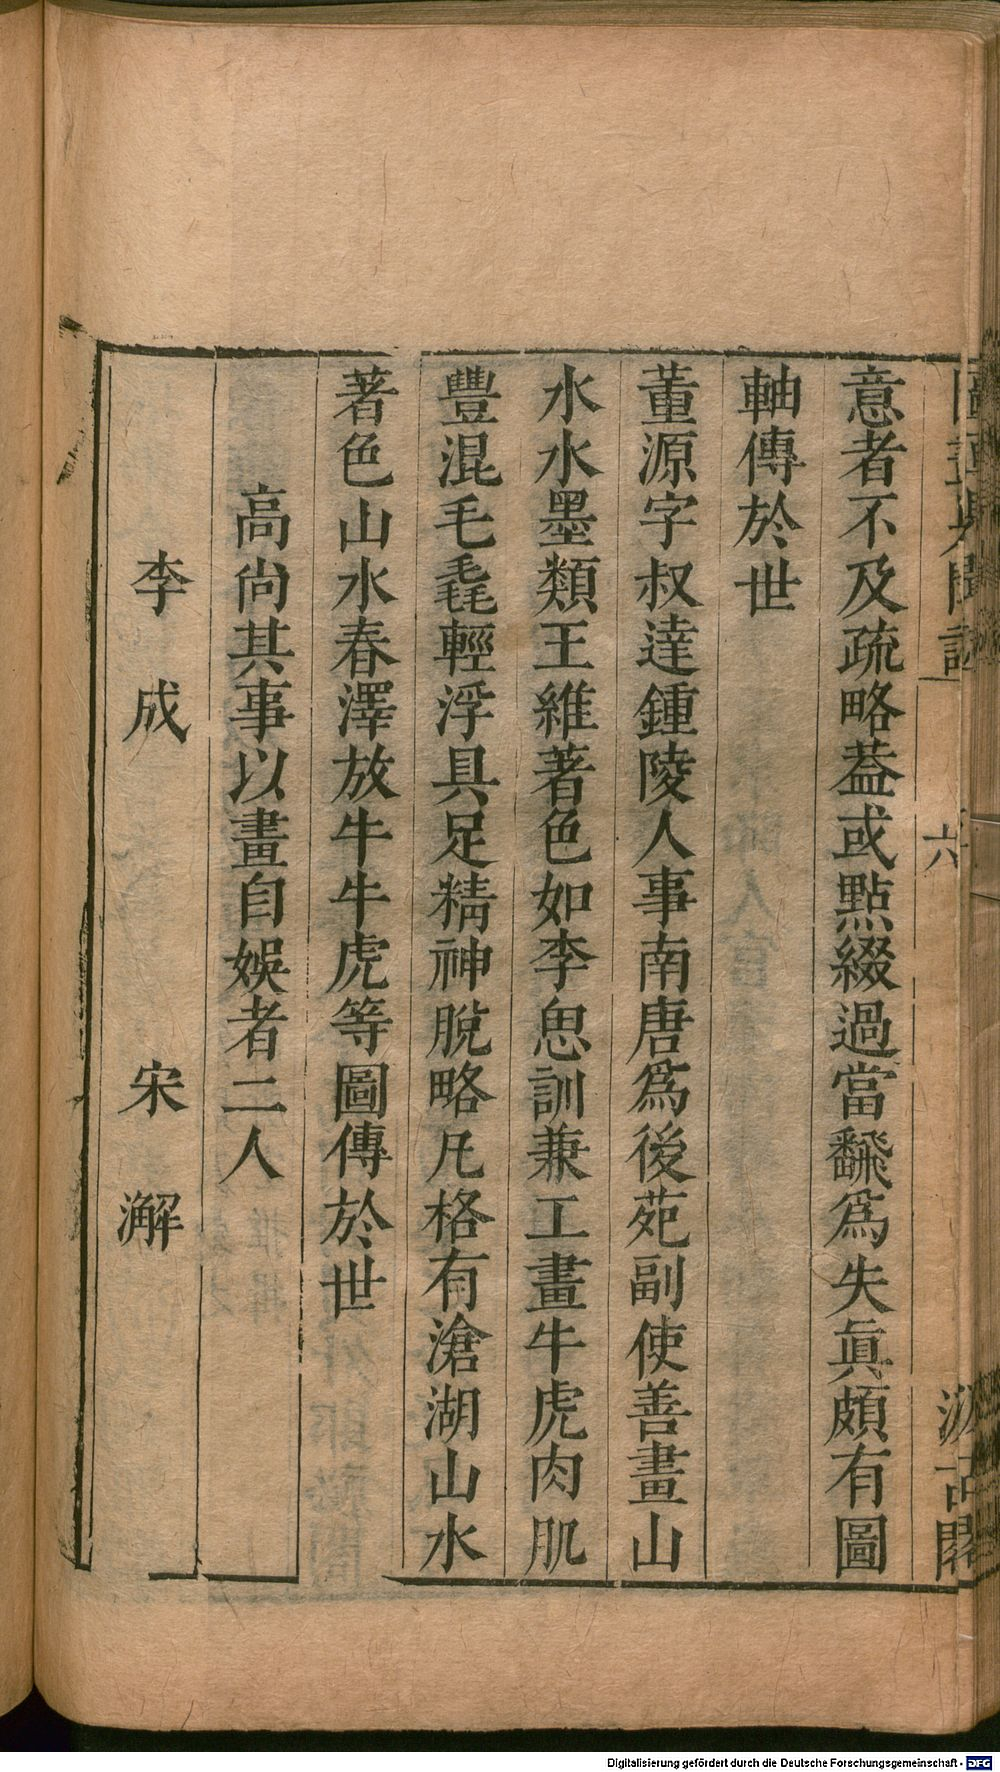 意者不及疏略葢或點綴過當飜爲失眞頗有圖
軸傳於世
董源字叔達鍾陵人事南唐爲後苑副使善畫山
水水墨類王維著色如李思訓兼工畫牛虎肉肌
豐混毛毳輕浮具足精神脫略凡格有滄湖山水
著色山水春澤放牛牛虎等圖傳於世
高尚其事以畫自娛者二人
李成 宋澥
六
Digitalisierung gefördert durch die Deutsche Forschungsgemeinschaft - DFG